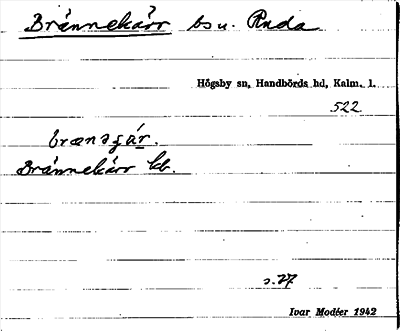 Brännekärr bs u. Ruda
Högsby sn, Handbörds hd, Kalm. l.
522.
Brännekärr kb.
s. 27
Ivar Modéer 1942